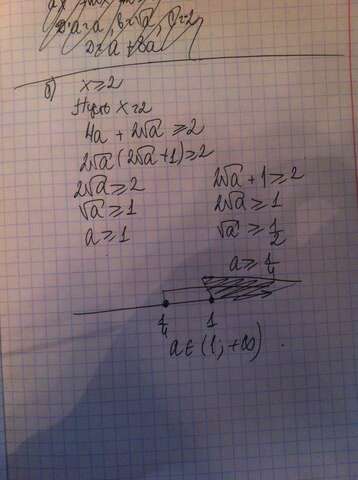 б) x ≥ 2
Пусть x = 2
4a + 2√a ≥ 2
2√a (2√a + 1) ≥ 2
2√a ≥ 2
√a ≥ 1
a ≥ 1
2√a + 1 ≥ 2
2√a ≥ 1
√a ≥ 1/2
a ≥ 1/4
1/4 1
a ∈ (1; +∞)